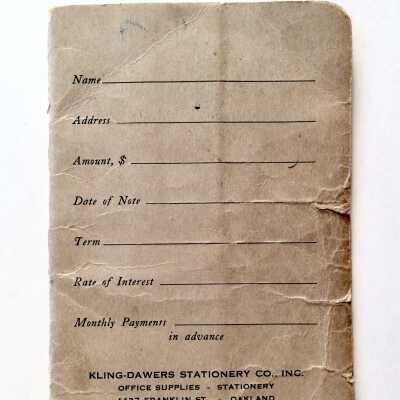 Name
Address
Amount, $
Date of Note
Term
Rate of Interest
Monthly Payments
in advance
KLING-DAWERS STATIONERY CO., INC.
OFFICE SUPPLIES - STATIONERY
FRANKLIN ST. - OAKLAND